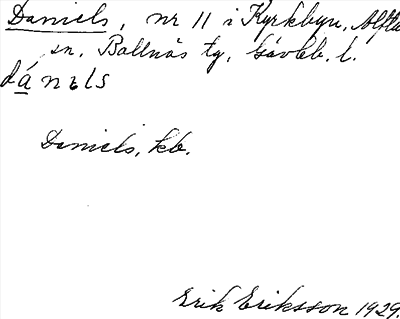 Daniels, nr 11 i Kyrkbyn, Alfta
sn, Bollnäs tg, Gävleb. l.
dánɩls
Daniels, kb.
Erik Eriksson 1929.